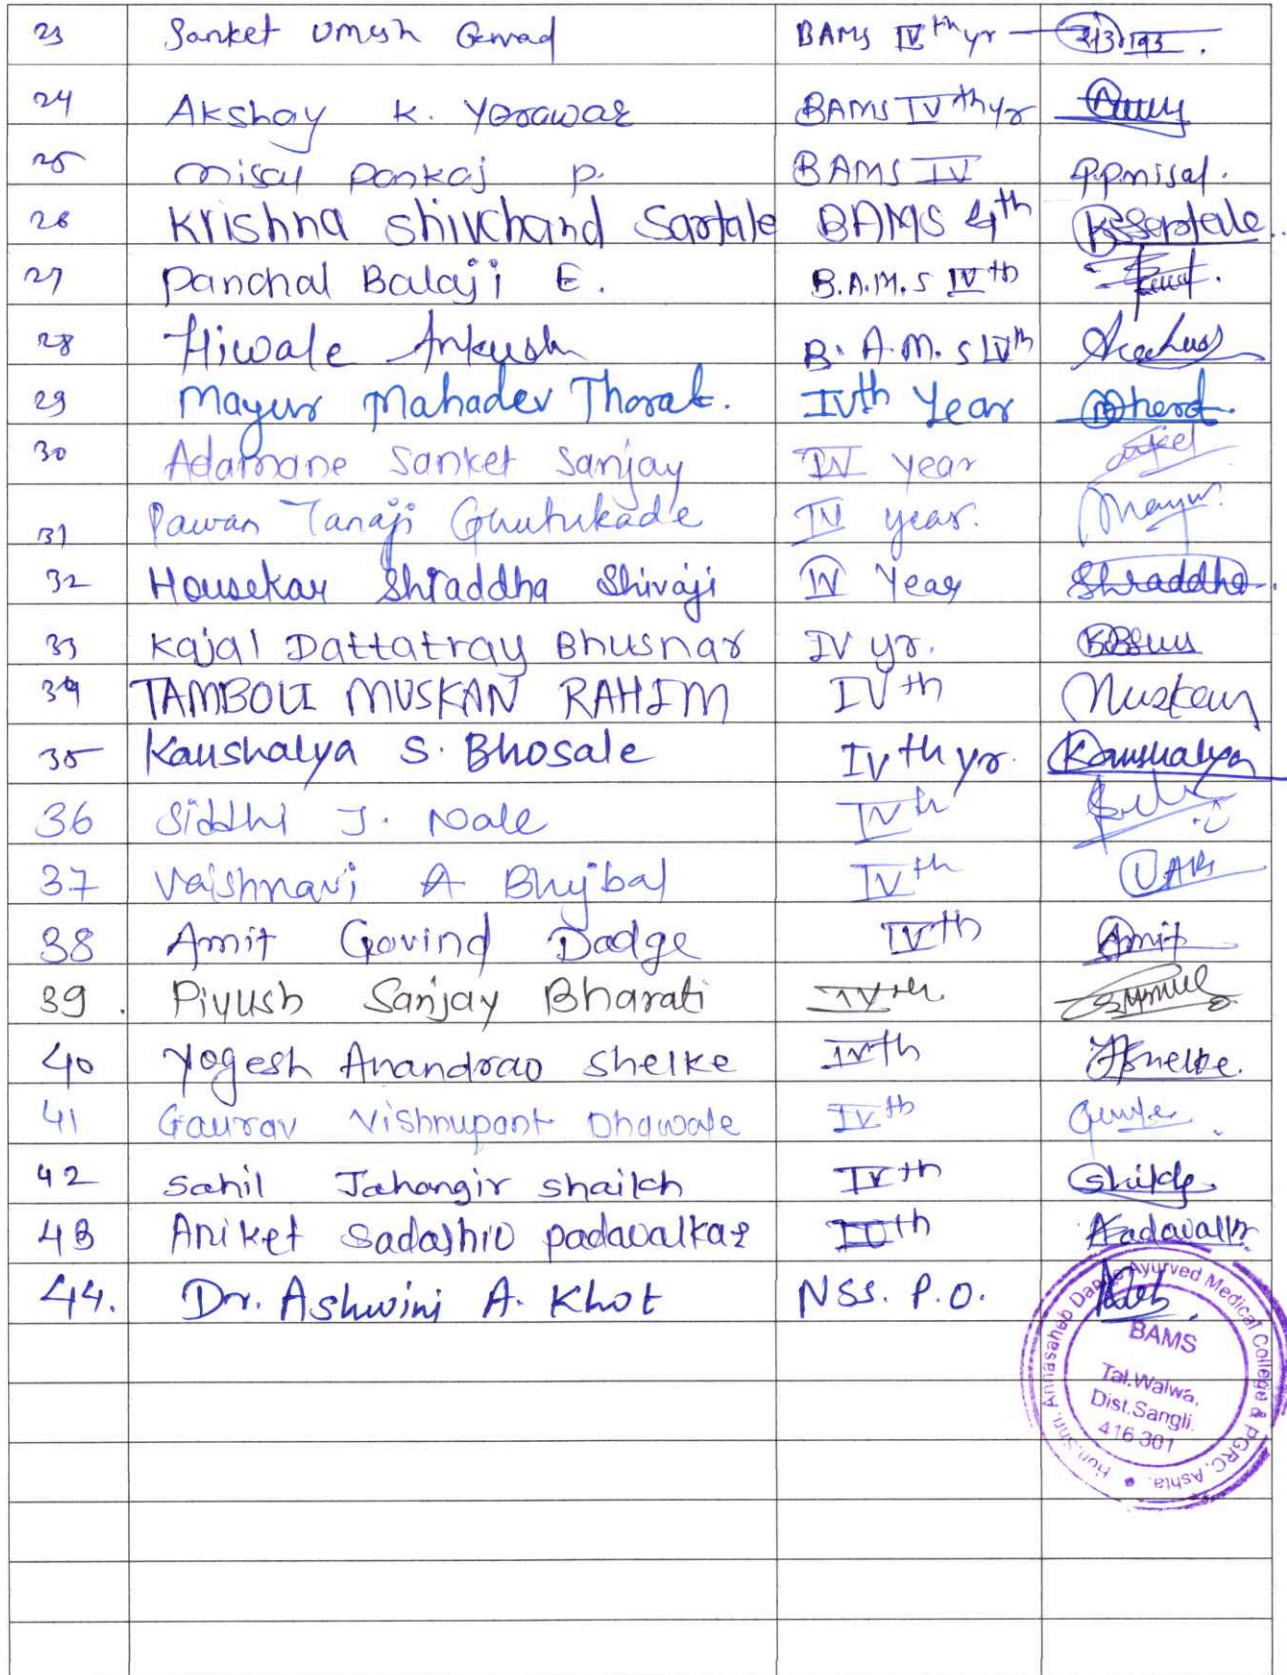 23 Sanket Umesh BAMS IVth yr
24 Akshay K. Yerawar BAMS IVth yr
25 Misal Pankaj P. BAMS IV P.P.Misal.
26 Krishna Shivchand Sartale BAMS 4th KSSartale
27 Panchal Balaji E. B.A.M.S IVth
28 Hiwale Ankush B.A.M.S IVth
29 Mayur Mahadev Thorat. IVth Year
30 Adamane Sanket Sanjay IV year
31 Pawan Tanaji Ghutukade IV year.
32 Housekar Shraddha Shivaji IV Year Shraddha
33 Kajal Dattatray Bhusnar IV yr.
34 TAMBOLI MUSKAN RAHIM IVth Muskan
35 Kaushalya S. Bhosale IVth yr. Kaushalya
36 Siddhi J. Nale IVth
37 Vaishnavi A Bhujbal IVth
38 Amit Govind Dadge IVth Amit
39. Piyush Sanjay Bharati IVth
40 Yogesh Anandrao Shelke IVth
41 Gaurav Vishnupant Dhawale IVth
42 Sahil Jahangir Shaikh IVth
43 Aniket Sadashiv Padavalkar IVth
44. Dr. Ashwini A. Khot NSS. P.O.
Hon.Shri. Annasaheb Dange Ayurved Medical College & PGRC, Ashta.
BAMS
Tal.Walwa,
Dist.Sangli.
416 301